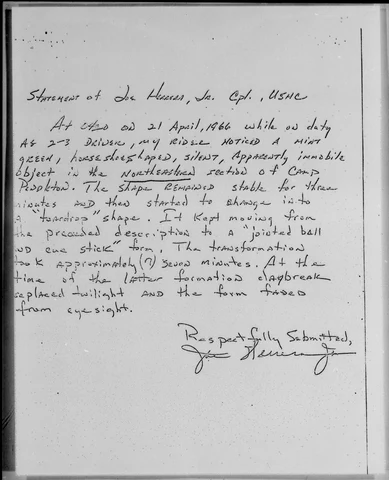 Statement of Joe Herrera, Jr. Cpl., USMC
At 0420 on 21 April, 1966 while on duty
as 2-3 driver, my rider noticed a mint
green, horseshoe shaped, silent, apparently immobile
object in the northeastern section of Camp
Pendleton. The shape remained stable for three
minutes and then started to change into
a "teardrop" shape. It kept moving from
the preceeded description to a "jointed ball
nd one stick" form. The transformation
ook approximately (7) seven minutes. At the
time of the latter formation daybreak
replaced twilight and the form faded
from eyesight.
Respectfully Submitted,
Joe Herrera Jr